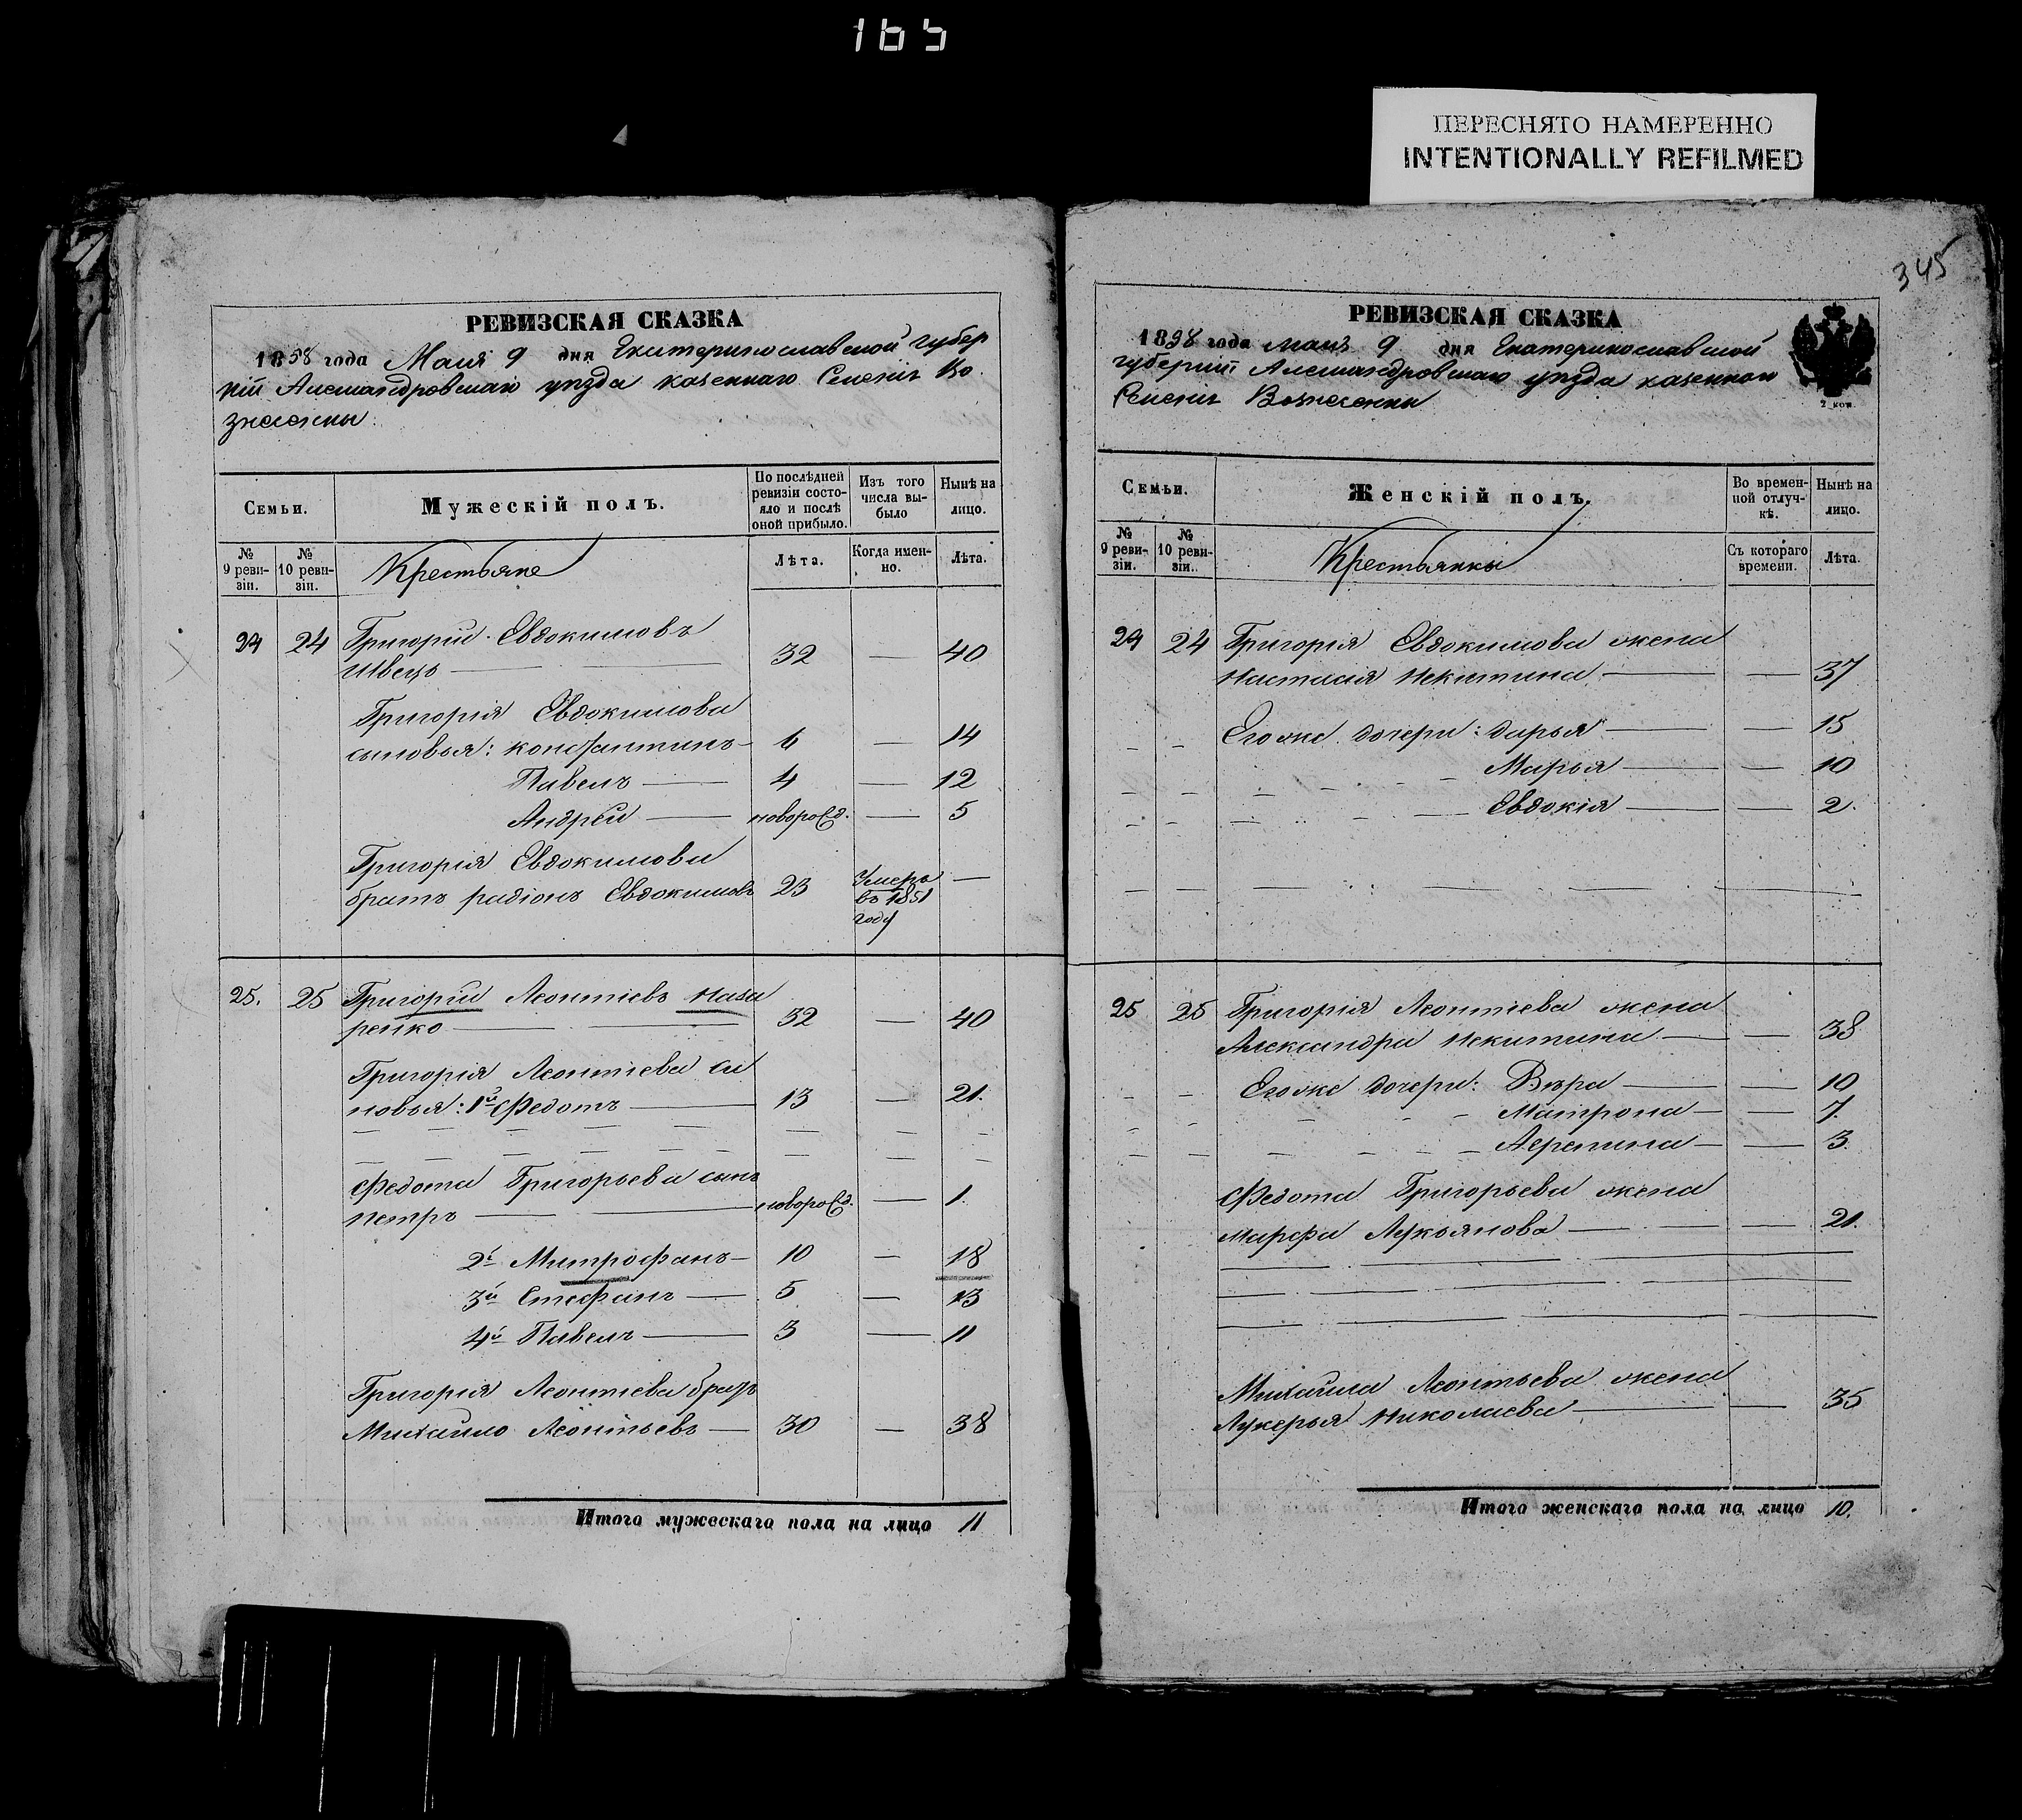 165
ПЕРЕСНЯТО НАМЕРЕННО
INTENTIONALLY REFILMED
РЕВИЗСКАЯ СКАЗКА
1858 года Маія 9 дня Екатеринославской губер
ніи Александровскаго уѣзда казеннаго Селенія Во
знесенки
Семьи.
Мужескій полъ.
По послѣдней ревизіи состояло и послѣ оной прибыло.
Изъ того числа выбыло
Нынѣ на лицо.
№ 9 ревизіи.
№ 10 ревизіи.
Крестьяне
Лѣта.
Когда именно.
Лѣта.
24 24 Григорій Евдокимовъ
Швецъ — 32 — 40
Григорія Евдокимова
сыновья: Константинъ — 6 — 14
Павелъ — 4 — 12
Андрей — новорожд. — 5
Григорія Евдокимова
братъ радіонъ Евдокимовъ 23 Умеръ въ 1851 году —
25. 25 Григорій Леонтіевъ Наза
ренко — 32 — 40
Григорія Леонтіева сы
новья: 1й Федотъ — 13 — 21.
Федота Григорьева сынъ
Петръ — новорожд. — 1.
2й Митрофанъ — 10 — 18
3й Стефанъ — 5 — 13
4й Павелъ — 3 — 11
Григорія Леонтіева братъ
Михаило Леонтьевъ — 30 — 38
Итого мужескаго пола на лицо 11
345
РЕВИЗСКАЯ СКАЗКА
1858 года маія 9 дня Екатеринославской
губерніи Александровскаго уѣзда казеннаго
Селенія Вознесенки
2 коп.
Семьи.
Женскій полъ.
Во временной отлучкѣ.
Нынѣ на лицо.
№ 9 ревизіи.
№ 10 ревизіи.
Крестьянки
Съ котораго времени.
Лѣта.
24 24 Григорія Евдокимова жена
Настасія Некитина — — 37
Его же дочери: дарья — — 15
Марья — — 10
Евдокія — — 2.
25 25 Григорія Леонтіева жена
Александра Некитина — — 38
Его же дочери: Вѣра — — 10
Матрона — — 7.
Агрепина — — 3.
Федота Григорьева жена
марфа Лукьянова — — 21.
Михаила Леонтьева жена
Лукерья Николаева — — 35
Итого женскаго пола на лицо 10.